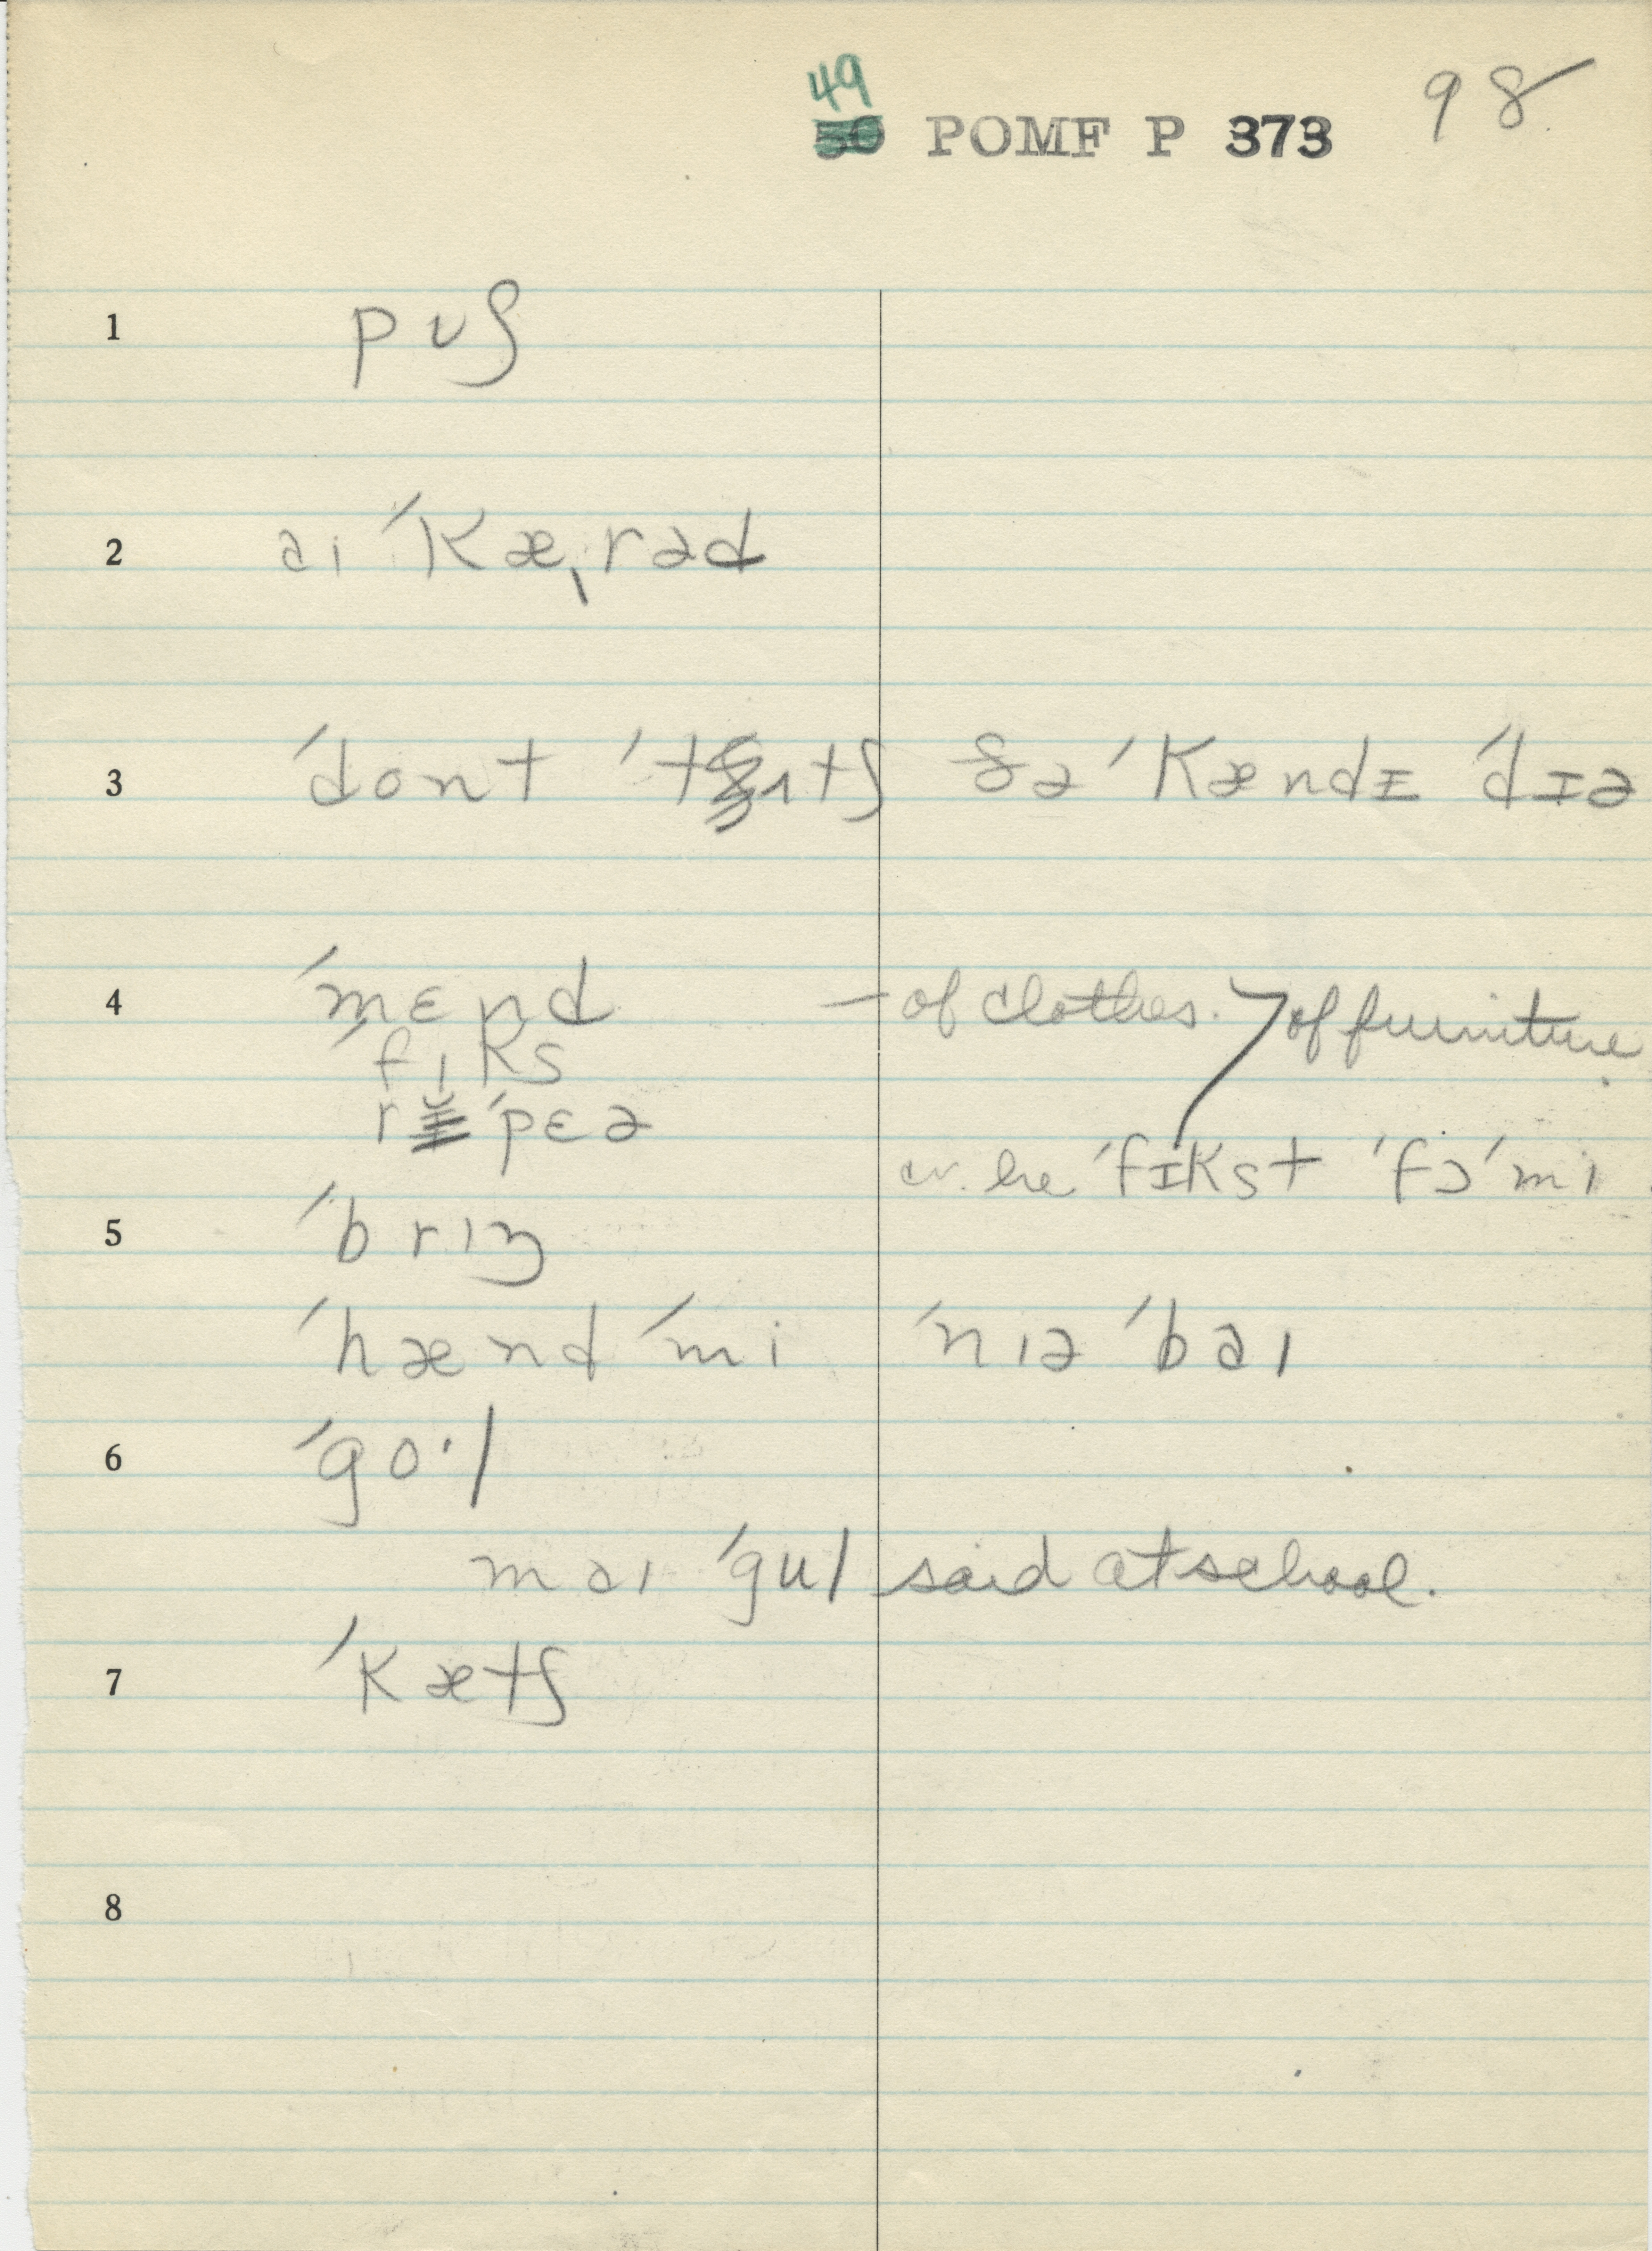 49
50 POMF P 373 98
1 pʊʃ
2 aɪ ˈkæˌrəd
3 ˈdont ˈtʌtʃ ðə ˈkændɪ ˈdɪə
4 ˈmɛnd — of clothes. of furniture.
ˈfɪks
r ˈpɛə
cv. he ˈfɪkst ˈfɔ ˈmi.
5 ˈbrɪŋ
ˈhænd ˈmi ˈnɪə ˈbaɪ
6 ˈgo·l
maɪ ˈgul said at school.
7 ˈkætʃ
8